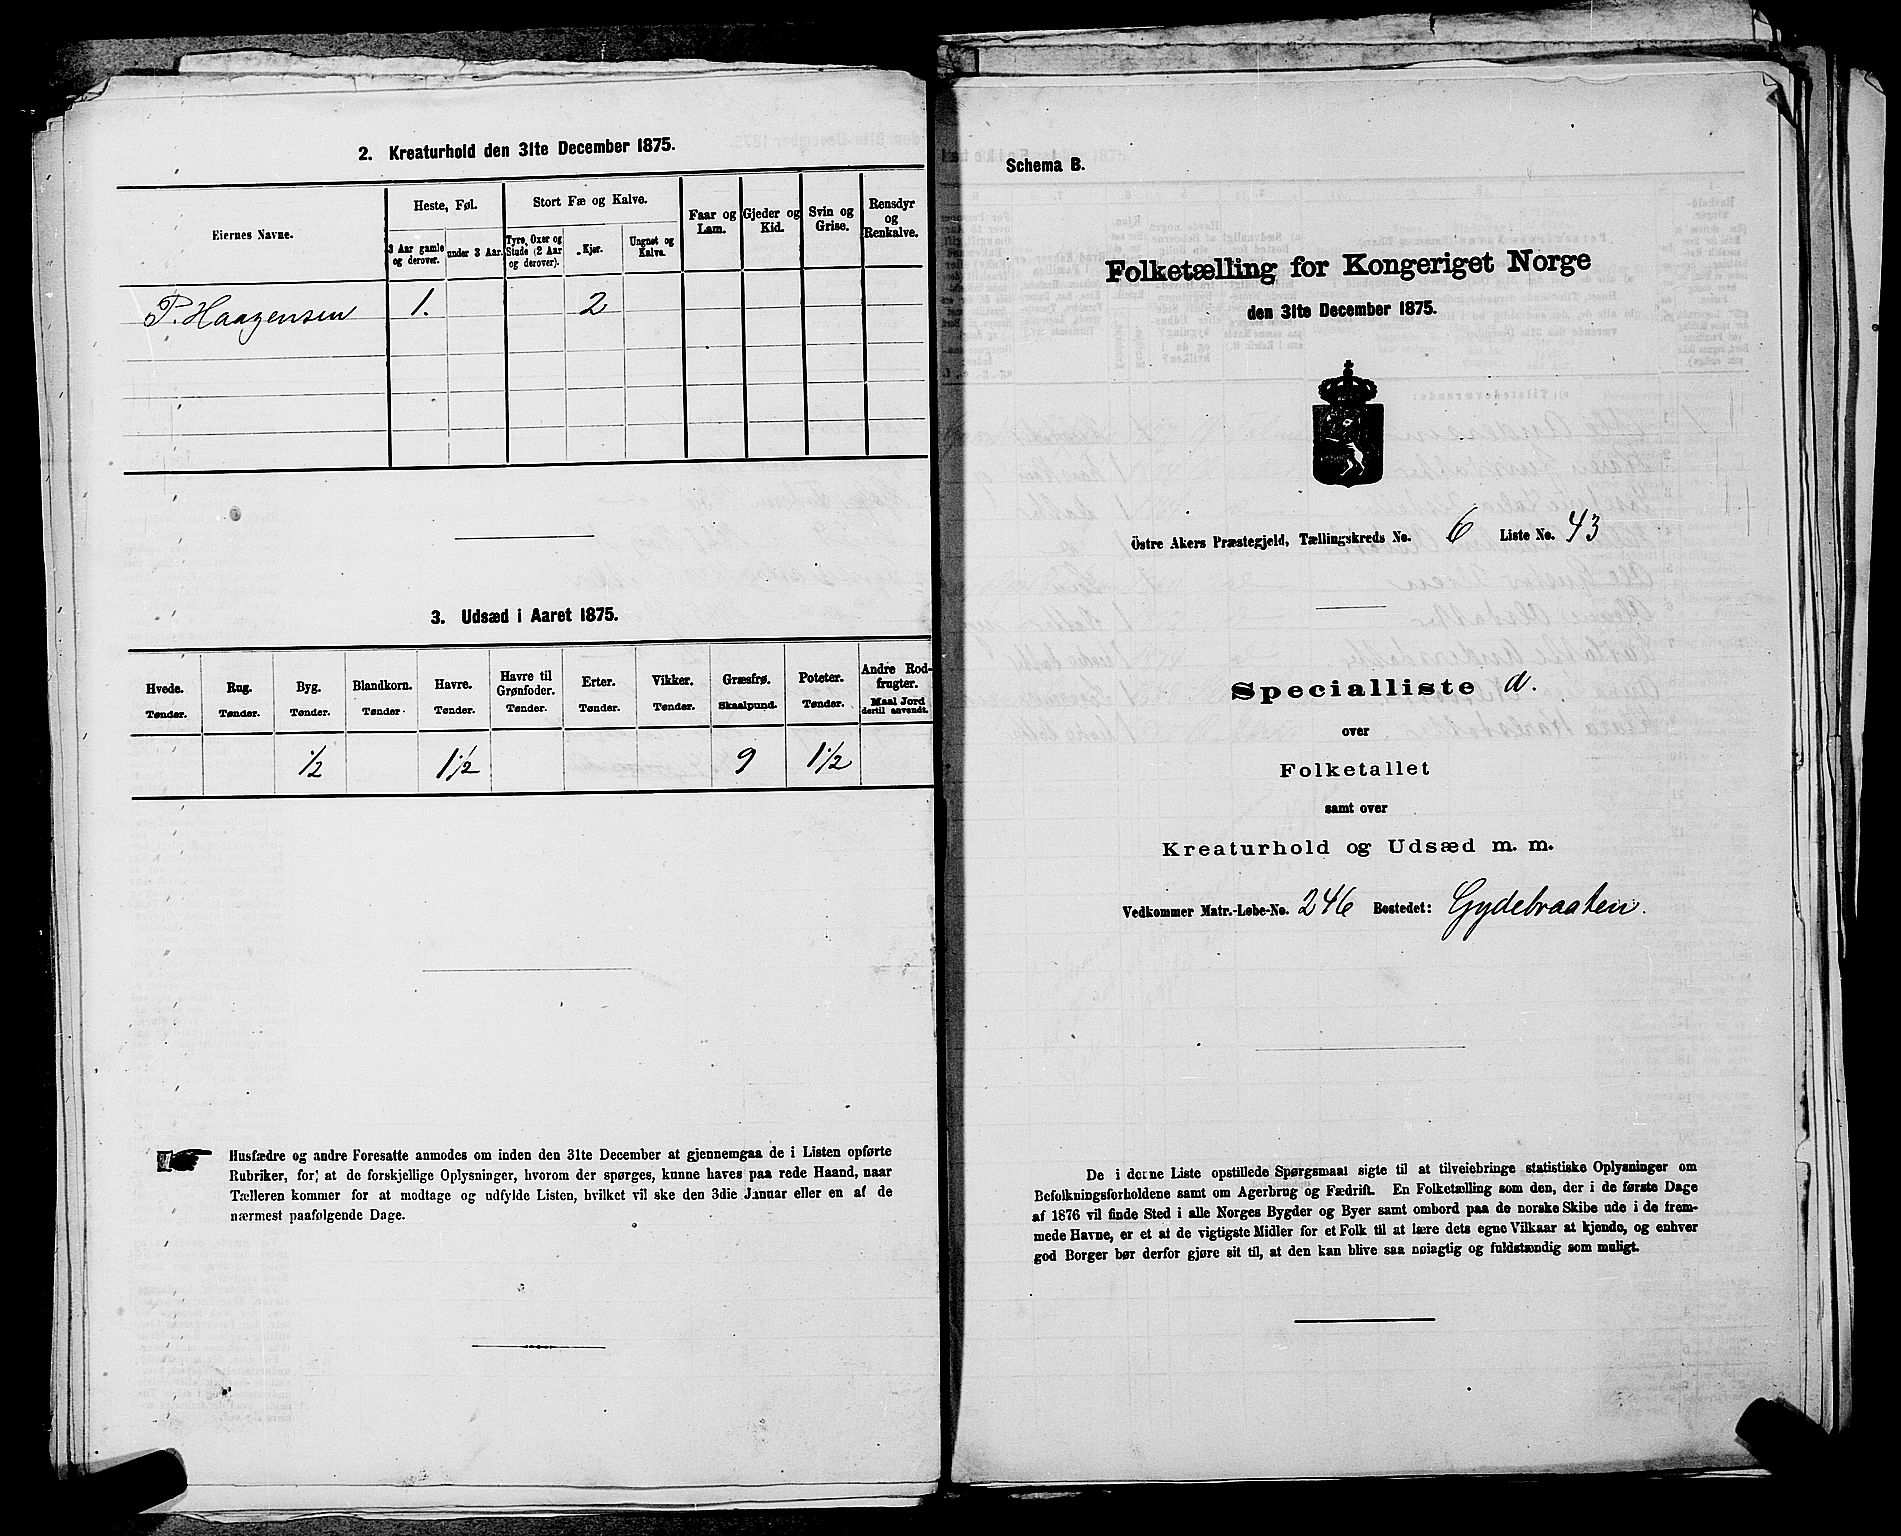 2. Kreaturhold den 31te December 1875.
Eiernes Navne.
Heste, Føl.
Stort Fæ og Kalve.
Faar og Lam.
Gjeder og Kid.
Svin og Grise.
Rensdyr og Renkalve.
3 Aar gamle og derover.
under 3 Aar.
Tyre, Oxer og Stude (2 Aar og derover).
Kjør.
Ungnøt og Kalve.
P. Haagensen 1. 2
3. Udsæd i Aaret 1875.
Hvede. Rug. Byg. Blandkorn. Havre. Havre til Grønfoder. Erter. Vikker. Græsfrø. Poteter. Andre Rodfrugter.
Tønder. Tønder. Tønder. Tønder. Tønder. Tønder. Tønder. Tønder. Skaalpund. Tønder. Maal Jord dertil anvendt.
1/2 1 1/2 9 1 1/2
Husfædre og andre Foresatte anmodes om inden den 31te December at gjennemgaa de i Listen opførte
Rubriker, for, at de forskjellige Oplysninger, hvorom der spørges, kunne haves paa rede Haand, naar
Tælleren kommer for at modtage og udfylde Listen, hvilket vil ske den 3die Januar eller en af de
nærmest paafølgende Dage.
Schema B.
Folketælling for Kongeriget Norge
den 31te December 1875.
Östre Akers Præstegjeld, Tællingskreds No. 6 Liste No. 43
Specialliste a.
over
Folketallet
samt over
Kreaturhold og Udsæd m. m.
Vedkommer Matr.-Løbe-No. 246 Bostedet: Gydebraaten.
De i denne Liste opstillede Spørgsmaal sigte til at tilveiebringe statistiske Oplysninger om
Befolkningsforholdene samt om Agerbrug og Fædrift. En Folketælling som den, der i de første Dage
af 1876 vil finde Sted i alle Norges Bygder og Byer samt ombord paa de norske Skibe ude i de frem-
mede Havne, er et af de vigtigste Midler for et Folk til at lære dets egne Vilkaar at kjende, og enhver
god Borger bør derfor gjøre sit til, at den kan blive saa nøiagtig og fuldstændig som muligt.